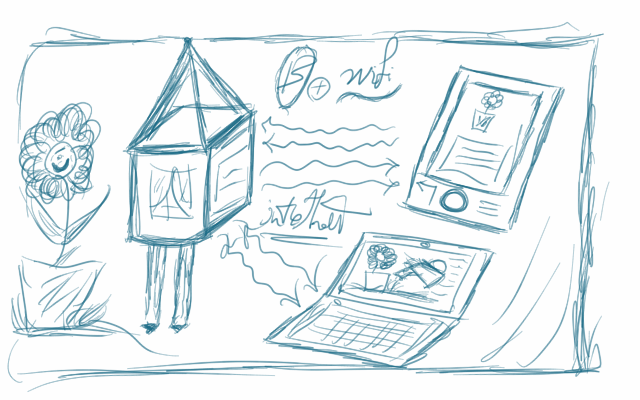 B + wifi
internet